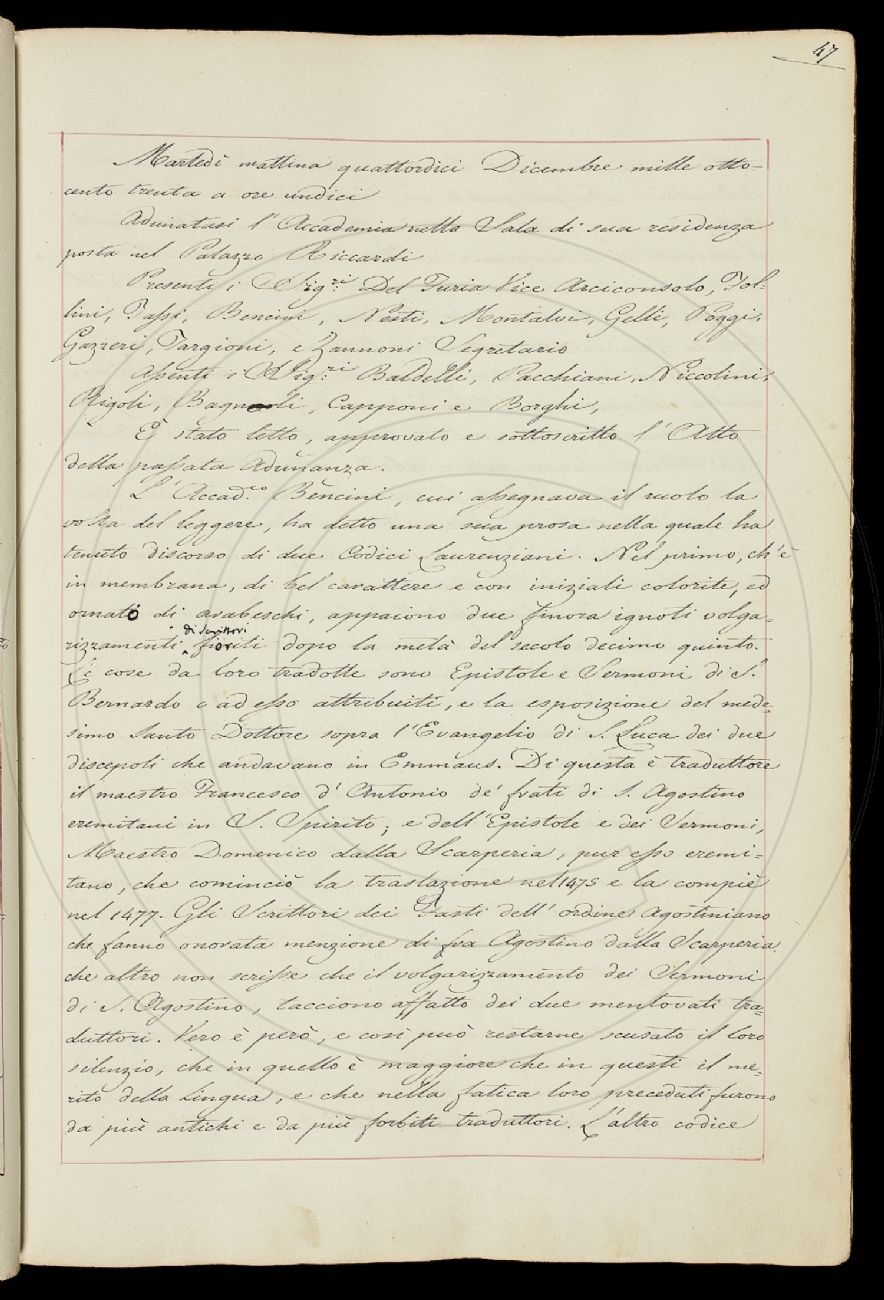 47
Martedì mattina quattordici Dicembre mille otto-
cento trenta a ore undici
Adunatasi l'Accademia nella Sala di sua residenza
posta nel Palazzo Riccardi
Presenti i Sig.ri Del Furia Vice Arciconsolo, Fol-
lini, Tassi, Bencini, Nesti, Montalvi, Gelli, Poggi,
Gazzeri, Targioni, e Zannoni Segretario
Assenti i Sig.ri Baldelli, Pacchiani, Niccolini,
Rigoli, Bagnoli, Capponi e Borghi,
È stato letto, approvato e sottoscritto l'Atto
della passata Adunanza.
L'Accad.co Bencini, cui assegnava il ruolo la
volta del leggere, ha letto una sua prosa nella quale ha
tenuto discorso di due Codici Laurenziani. Nel primo, ch'è
in membrana, di bel carattere e con iniziali colorite, ed
ornato di arabeschi, appaiono due finora ignoti volga-
rizzamenti di scrittori fioriti dopo la metà del secolo decimo quinto.
Le cose da loro tradotte sono Epistole e Sermoni di S.
Bernardo o ad esso attribuiti, e la esposizione del mede-
simo Santo Dottore sopra l'Evangelio di S. Luca dei due
discepoli che andavano in Emmaus. Di questa è traduttore
il maestro Francesco d'Antonio de' frati di S. Agostino
eremitani in S. Spirito; e dell'Epistole e dei Sermoni,
Maestro Domenico dalla Scarperia, pur esso eremi-
tano, che cominciò la traslazione nel 1475 e la compiè
nel 1477. Gli Scrittori dei Fasti dell'ordine Agostiniano
che fanno onorata menzione di fra Agostino dalla Scarperia
che altro non scrisse che il volgarizzamento dei Sermoni
di S. Agostino, tacciono affatto dei due mentovati tra-
duttori. Vero è però, e così può restarne scusato il loro
silenzio, che in quello è maggiore che in questi il me-
rito della Lingua, e che nella fatica loro preceduti furono
da più antichi e da più forbiti traduttori. L'altro codice